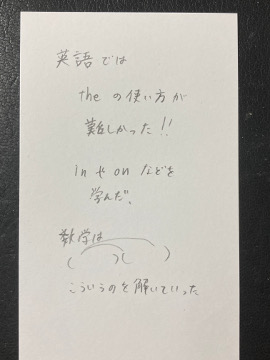 英語では
the の使い方が
難しかった!!
in や on などを
学んだ。
数学は
(    )(    )
こういうのを解いていった